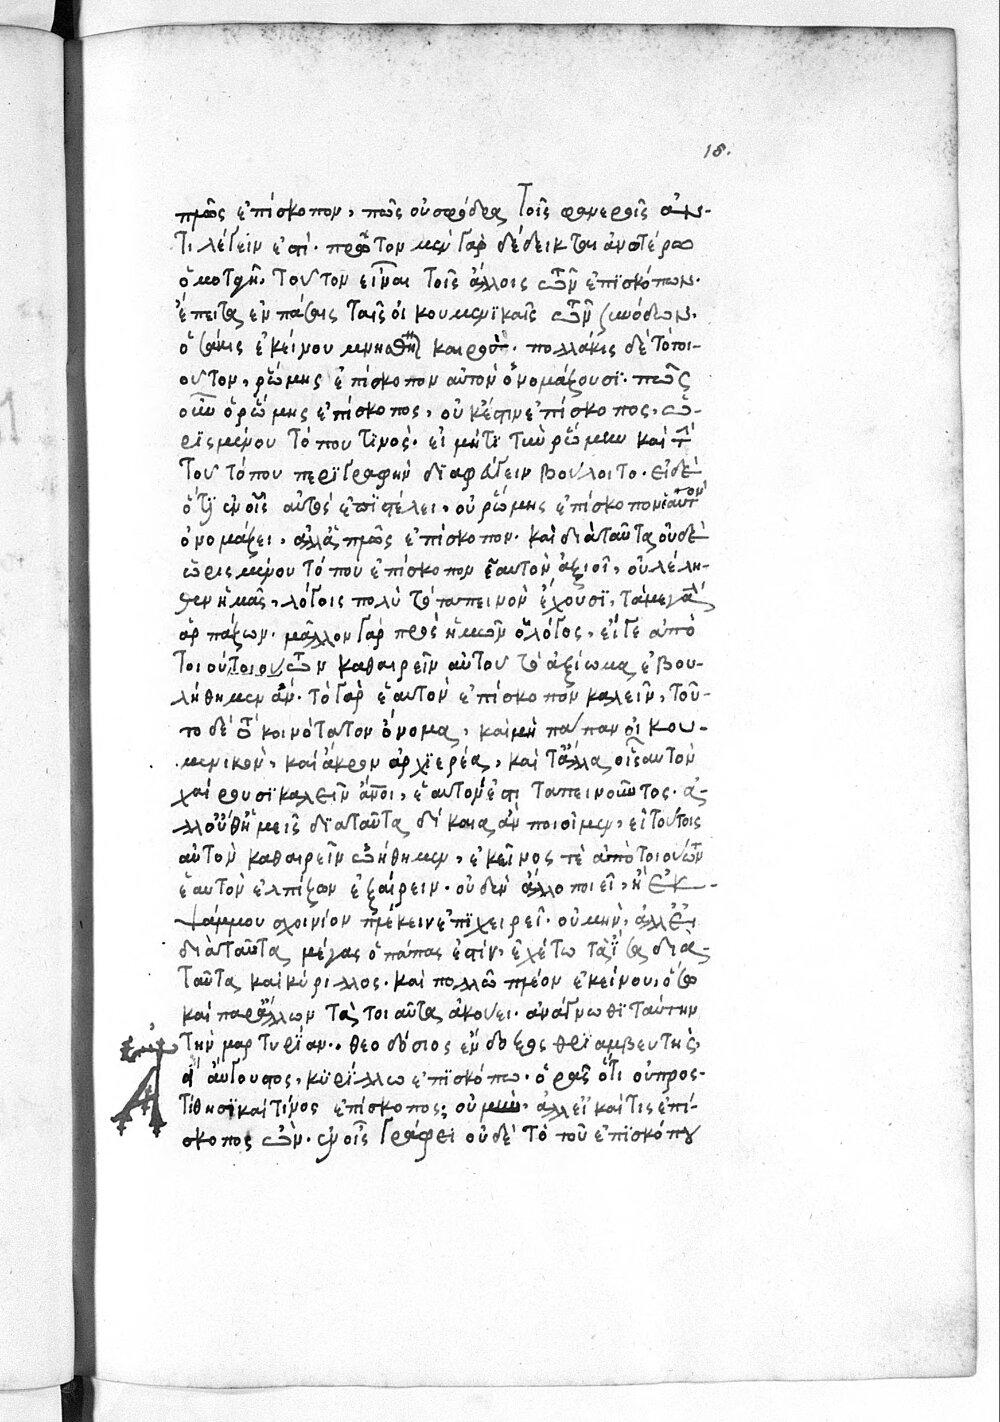 18.
πρῶς ἐπίσκοπον, πῶς οὐ σφόδρα τοῖς φανεροῖς ἀν-
τιλέγειν ἐστί. πρῶτον μὲν γὰρ δέδεικται ἀνωτέρω
ὁμοταγῆ τοῦτον εἶναι τοῖς ἄλλοις τῶν ἐπισκόπων.
ἔπειτα ἐν πάσαις ταῖς οἰκουμενικαῖς τῶν συνόδων,
ὁσάκις ἐκείνου μνησθῆναι καιρὸς. πολλάκις δὲ τὸ τοι-
οῦτον, ῥώμης ἐπίσκοπον αὐτὸν ὀνομάζουσι. πῶς
οὖν ὁ ῥώμης ἐπίσκοπος, οὐκ ἔστιν ἐπίσκοπος, ὡ-
ρισμένου τόπου τινός. εἰ μήτι τὴν ῥώμην καὶ τὴν
τοῦ τόπου περιγραφὴν διαφεύγειν βούλοιτο. εἰ δὲ
ὅτι ἐν οἷς αὐτὸς ἐπιστέλει, οὐ ῥώμης ἐπίσκοπον ἑαυτὸν
ὀνομάζει, ἀλλ' ἁπλῶς ἐπίσκοπον. καὶ διὰ ταῦτα οὐδὲ
ὡρισμένου τόπου ἐπίσκοπον ἑαυτὸν ἀξιοῖ, οὐ λέλη-
θεν ἡμᾶς, λόγοις πολὺ τὸ ταπεινὸν ἔχουσι, τὰ μεγάλα
ἁρπάζων. μᾶλλον γὰρ πρὸς ἡμῶν ὁ λόγος, εἴγε ἀπὸ
τοιούτου τῶν καθαιρεῖν αὐτοῦ τὸ ἀξίωμα ἐβου-
λήθημεν ἄν. τὸ γὰρ ἑαυτὸν ἐπίσκοπον καλεῖν, τοῦ-
το δὲ τὸ κοινότατον ὄνομα, καὶ μὴ πάπαν οἰκου-
μενικὸν, καὶ ἄκρον ἀρχιερέα, καὶ τἄλλα οἷς ἑαυτὸν
χαίρουσι καλεῖν ἅπασι, ἑαυτόν ἐστι ταπεινοῦντος. ἀ-
λλ' οὔθ' ἡμεῖς διὰ ταῦτα δίκαια ἂν ποιοῖμεν, εἰ τούτοις
αὐτὸν καθαιρεῖν ᾠήθημεν, ἐκεῖνός τε ἀπὸ τοιούτων
ἑαυτὸν ἐλπίζων ἐξαίρειν. οὐδὲν ἄλλο ποιεῖ, ἢ ἐκ
ψάμμου σχοινίον πλέκειν ἐπιχειρεῖ. οὐ μὴν, ἀλλ' εἰ
διὰ ταῦτα μέγας ὁ πάπας ἐστὶν, ἐχέτω τὰ ἴσα διὰ
ταῦτα καὶ κύριλλος. καὶ πολλῷ πλέον ἐκείνου, ὅσῳ
καὶ παρ' ἄλλων τὰ τοιαῦτα ἀκούει. ἀνάγνωθι ταύτην
τὴν μαρτυρίαν.. θεοδόσιος ἔνδοξος θριαμβευτὴς
ἀεὶ αὔγουστος, κυρίλλῳ ἐπισκόπῳ. ὁρᾷς ὅτι οὐ προσ-
τίθησι καὶ τίνος ἐπίσκοπος; οὐ μὴν, ἀλλ' εἰ καί τις ἐπί-
σκοπος ὢν. ἐν οἷς γράφει οὐδὲ τὸ τοῦ ἐπισκόπου